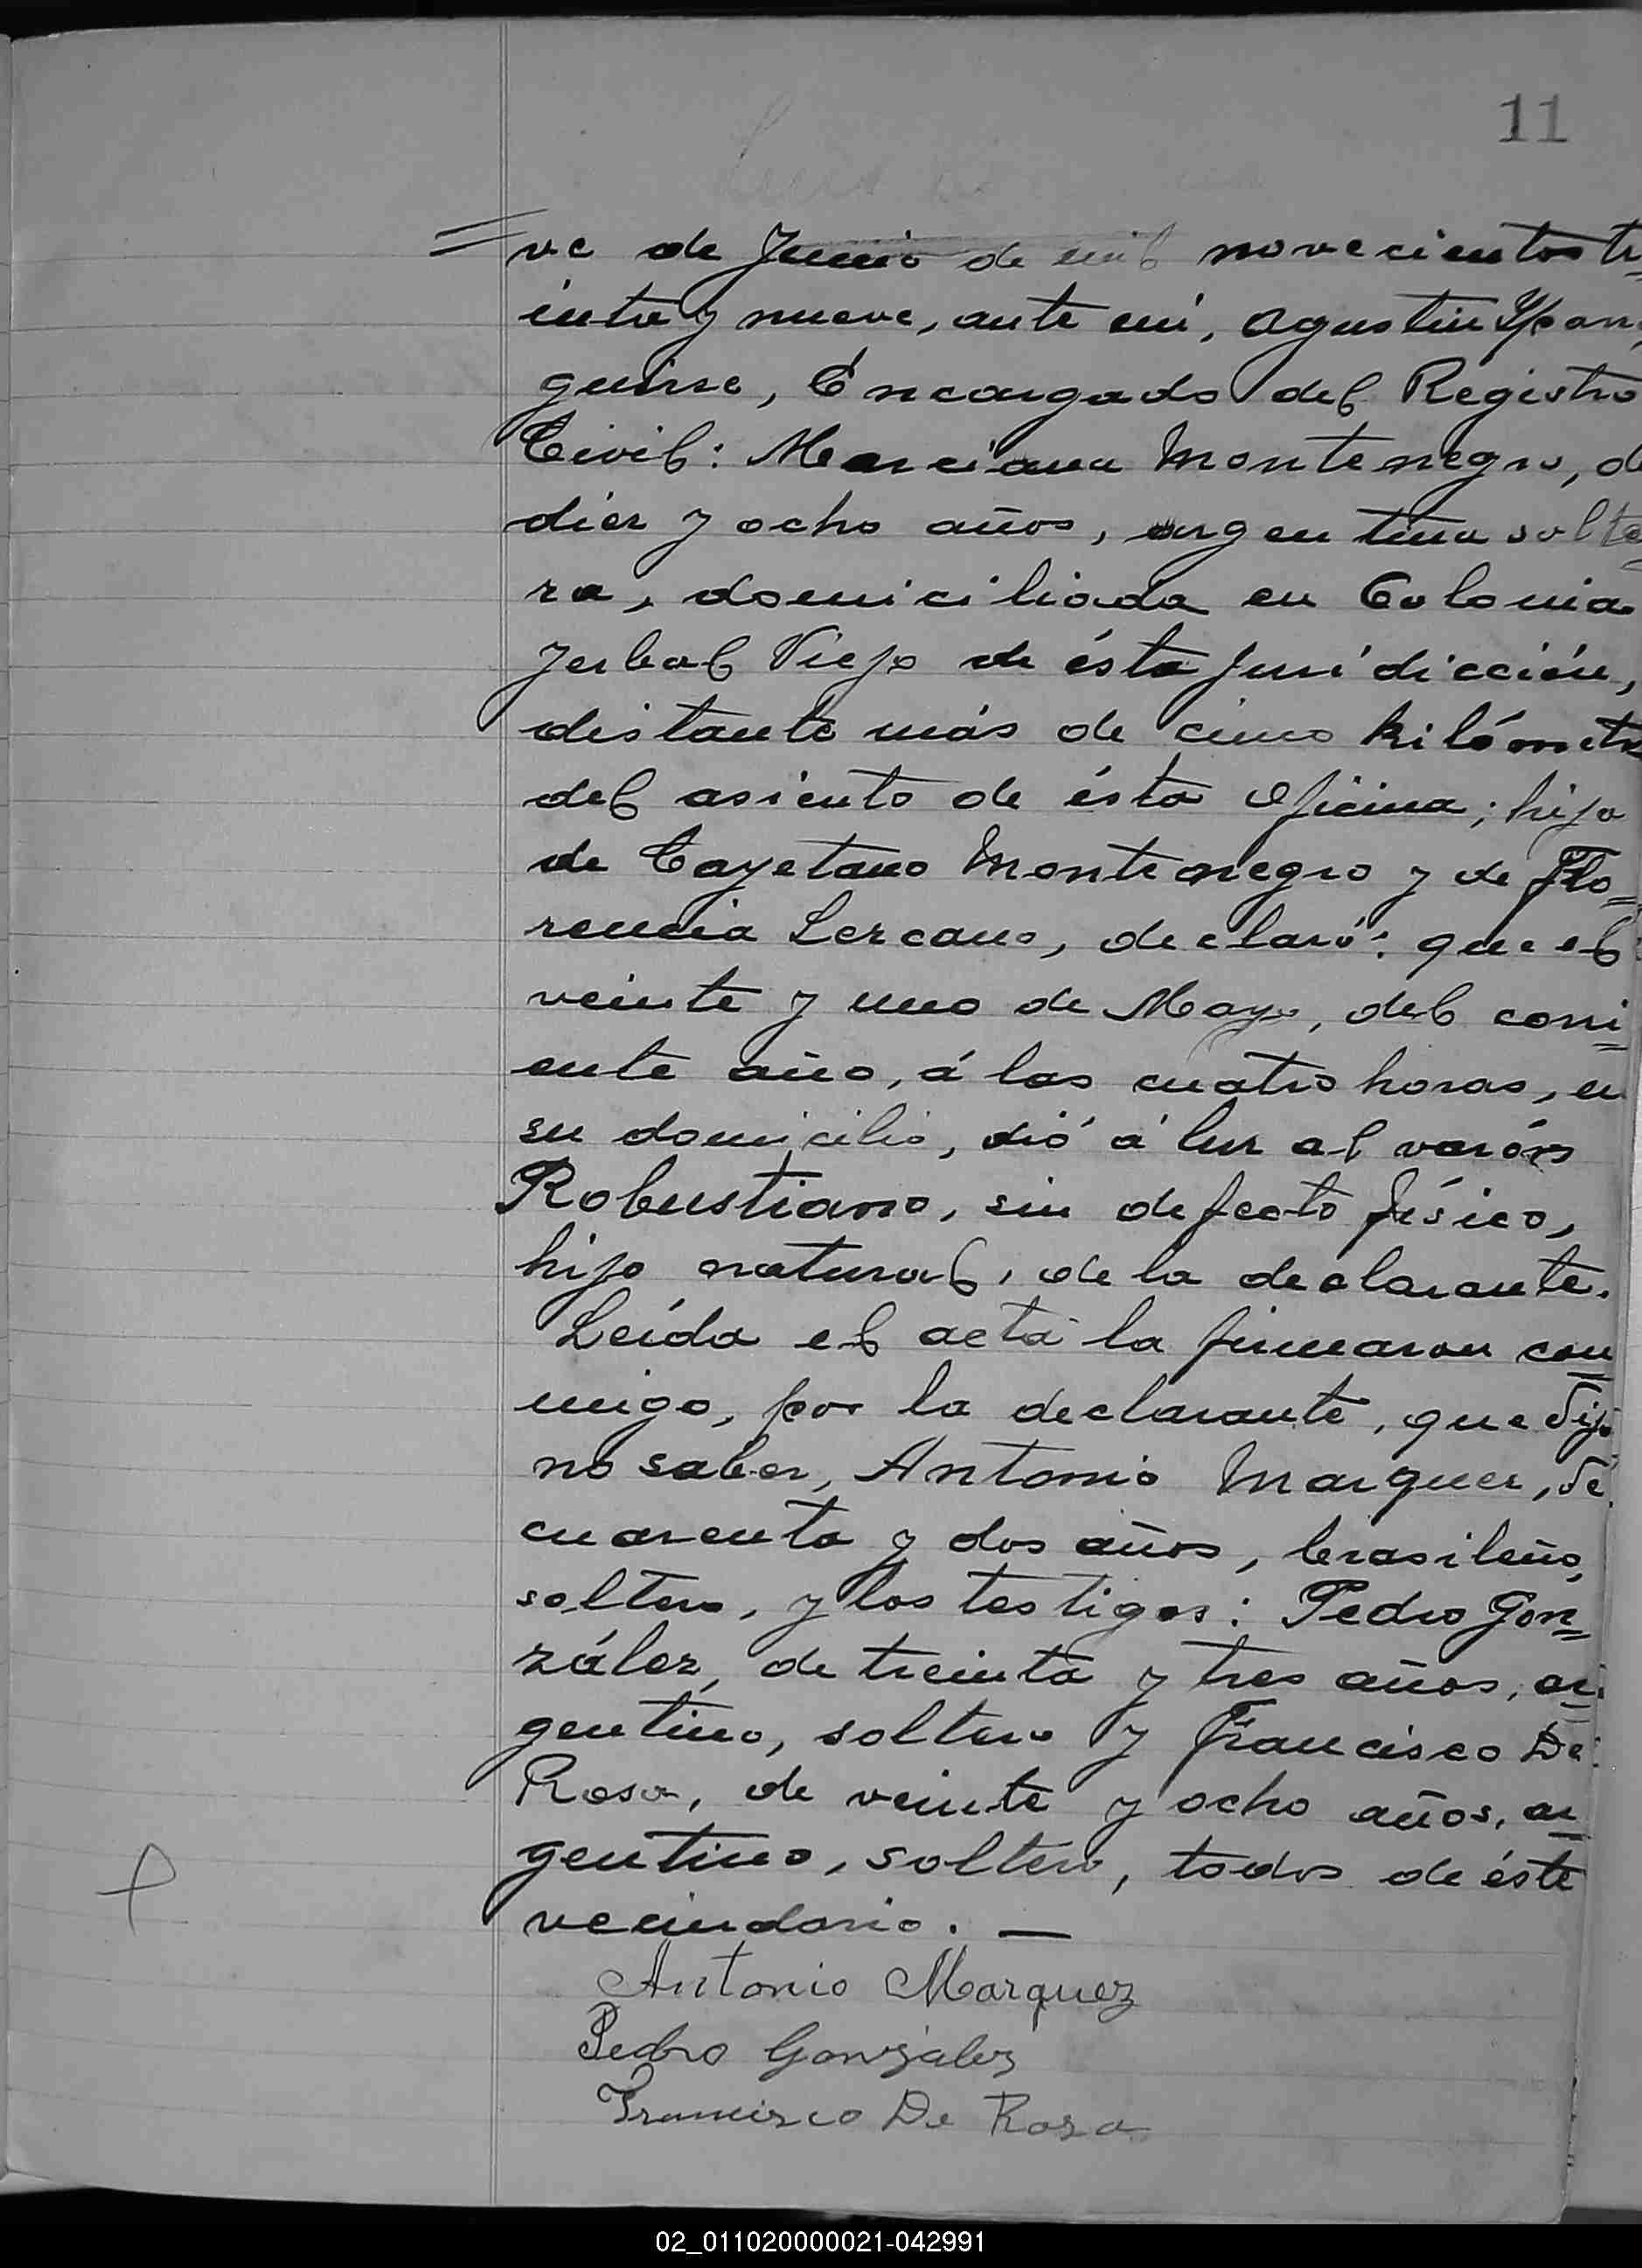 11
=ve de Junio de mil novecientos tr
einta y nueve, ante mí, Agustin Ypar
guirre, Encargado del Registro
Civil: Marciana Montenegro, d
diez y ocho años, argentina solte
ra, domiciliada en Colonia
Yerbal Viejo de ésta Jurí dicción,
distante más de cinco kilómetr
del asiento de ésta Oficina; hija
de Cayetano Montenegro y de Flo=
rencia Lezcano, declaró: que el
veinte y uno de Mayo, del corri=
ente año, á las cuatro horas, en
su domicilio, dió á luz al varón
Robustiano, sin defecto físico,
hijo natural, de la declarante.
Leída el acta la firmaron con=
migo, por la declarante, que dijo
no saber, Antonio Marquez, de
cuarenta y dos años, brasileño,
soltero, y los testigos: Pedro Gon=
zález, de treinta y tres años, ar=
gentino, soltero y Francisco De
Rosa, de veinte y ocho años, ar=
gentino, soltero, todos de éste
vecindario. —
Antonio Marquez
Pedro Gonzalez
Francisco De Rosa
02_011020000021-042991